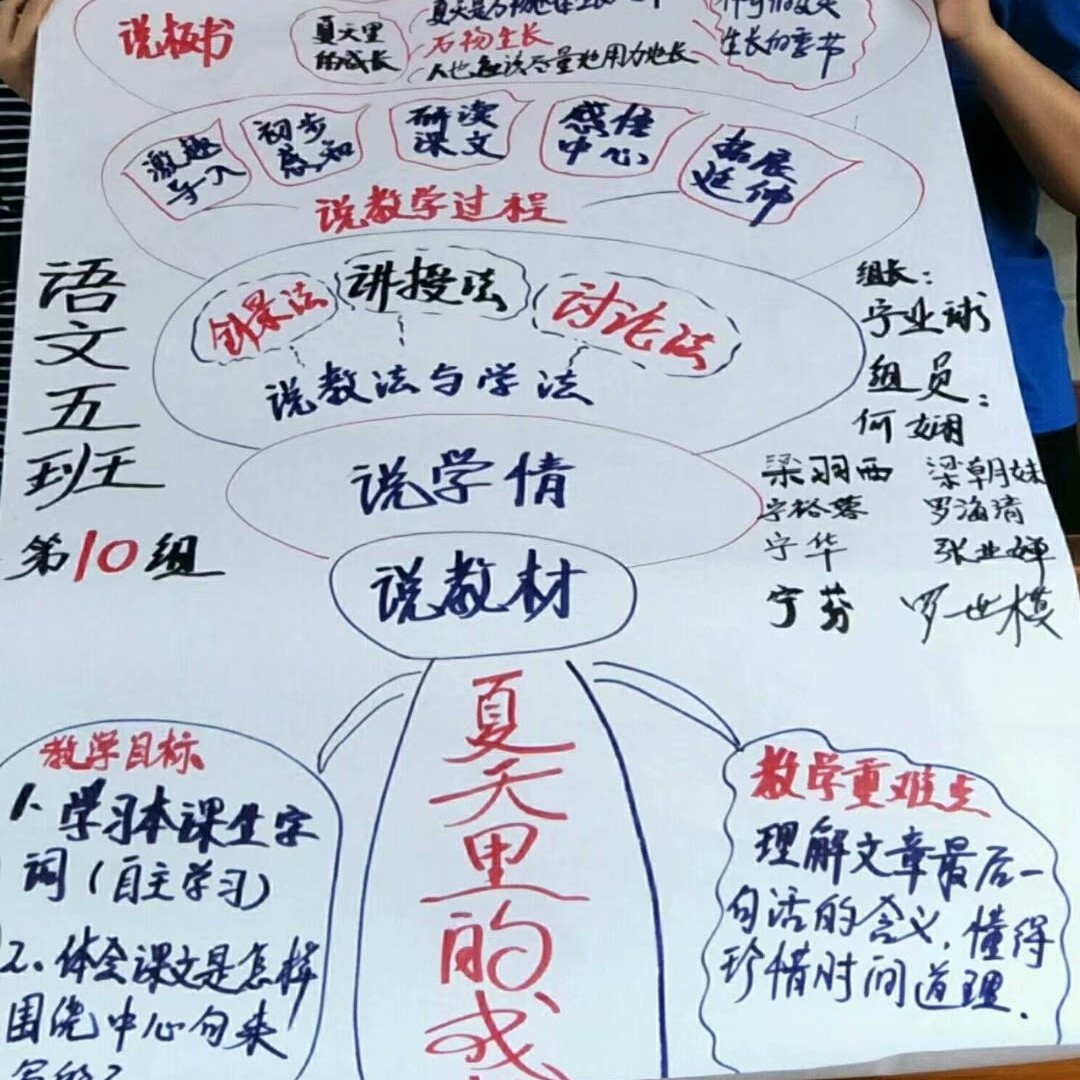 说板书
夏天里
的成长
万物生长
人也应该尽量地用力地长
生长的季节
激趣
导入
初步
感知
研读
课文
感悟
中心
拓展
延伸
说教学过程
讲授法
讨论法
说教法与学法
说学情
说教材
语文五班
第10组
组长:
宁业球
组员:
何娴
梁羽西 梁朝妹
宁裕蓉 罗海清
宁华 张业婵
宁芬 罗世模
夏天里的成
教学目标
1、学习本课生字
词(自主学习)
2、体会课文是怎样
围绕中心句来
教学重难点
理解文章最后一
句话的含义,懂得
珍惜时间道理.